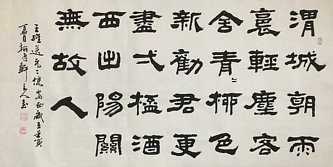 渭城朝雨
裛輕塵客
舍青柳色
新勸君更
盡弌桮酒
西出陽關
無故人
王維送元二使安西